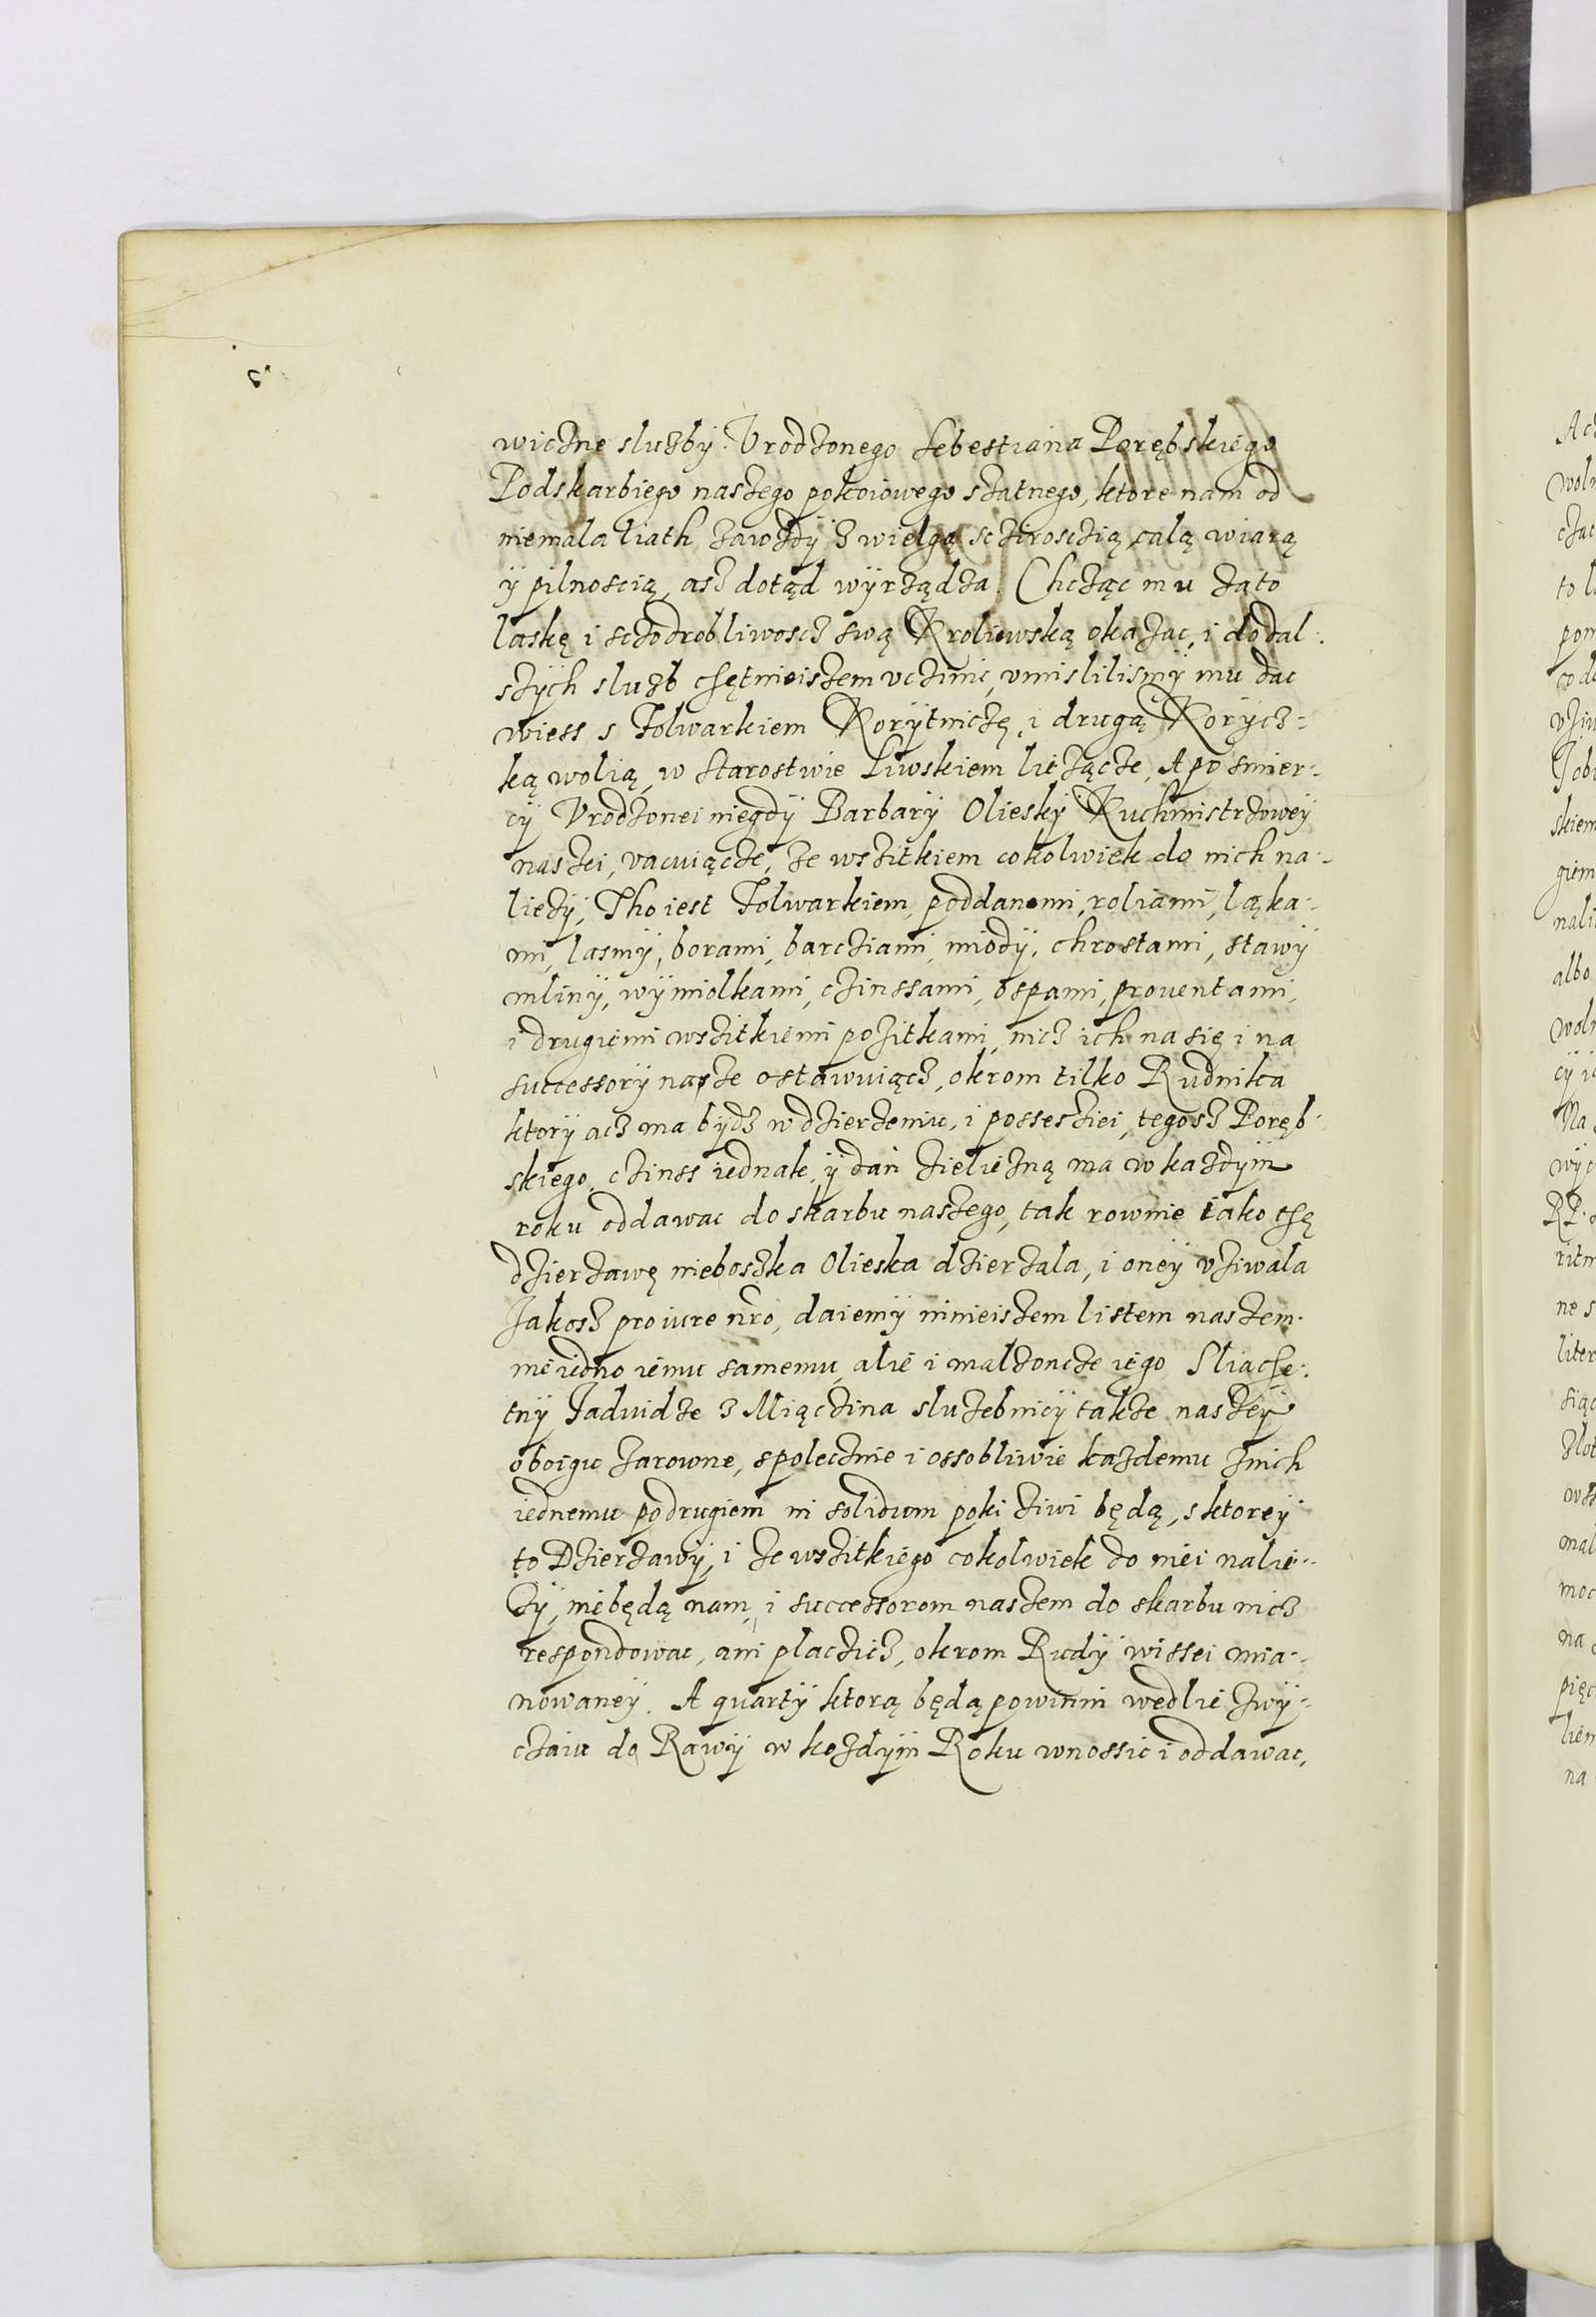 wiczne sluzby Vrodzonego Sebestiana Porębskiego
Podskarbiego naszego pokoiowego szatnego, ktore nam od
niemala liath zawzdÿ z wielgą scziroscią, calą wiarą
ÿ pilnoscią, asz dotąd wÿrządza. Chcząc mu za to
laskę i sczodrobliwoscz swą Kroliewską okazac, i do dal-
szÿch sluzb chętnieiszem vczinic, vmislilismÿ mu dac
wiess s Folwarkiem Korÿtniczę, i drugą Korÿcz-
ką wolią, w Starostwie Liwskiem liezącze, A po smier-
cÿ Vrodzonei niegdÿ Barbarÿ Olieskÿ Kuchmistrzoweÿ
naszei, vacuiącze, ze wszitkiem cokolwiek do nich na-
liezÿ, Tho iest Folwarkiem, poddanemi, roliami, ląka-
mi, lasmÿ, borami, barcziami, miodÿ, chrostami, stawÿ
mlinÿ, wÿmiolkami, czinssami, ospami, prouentami,
i drugiemi wszitkiemi pozitkami, nicz ich na się i na
successorÿ nasze ostawuiącz, okrom tilko Rudnika
ktorÿ acz ma bÿdz w dzierzeniu, i possesziei, tegosz Poręb-
skiego, czinss iednak, ÿ dań zieliezną ma w kazdÿm
roku oddawac do skarbu naszego, tak rownie iako thę
dzierzawę nieboszka Olieska dzierzala, i oneÿ vziwala
Jakosz pro iure nro, daiemÿ ninieiszem listem naszem.
nie iedno iemu samemu, alie i malzoncze iego Sliache-
tnÿ Jadvidze z Miączina sluzebnicÿ takze naszeÿ
oboigu zarowne, spolecznie i ossobliwie kazdemu znich
iednemu po drugiem in solidum poki ziwi będą, s ktoreÿ
to Dzierzawÿ, i ze wszitkiego cokolwiek do niei nalie-
zÿ, niebędą nam, i successorom naszem do skarbu nicz
respondowac, ani placzicz, okrom Rudÿ wissei mia-
nowaneÿ. A quartÿ ktorą będą powinni wedlie zwÿ-
czaiu do Rawÿ w kozdÿm Roku wnossic i oddawac,